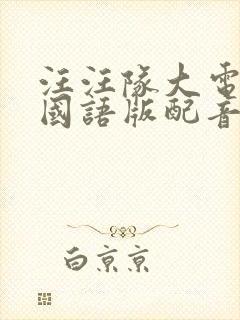 汪汪隊大電
國語版配音
白亰亰